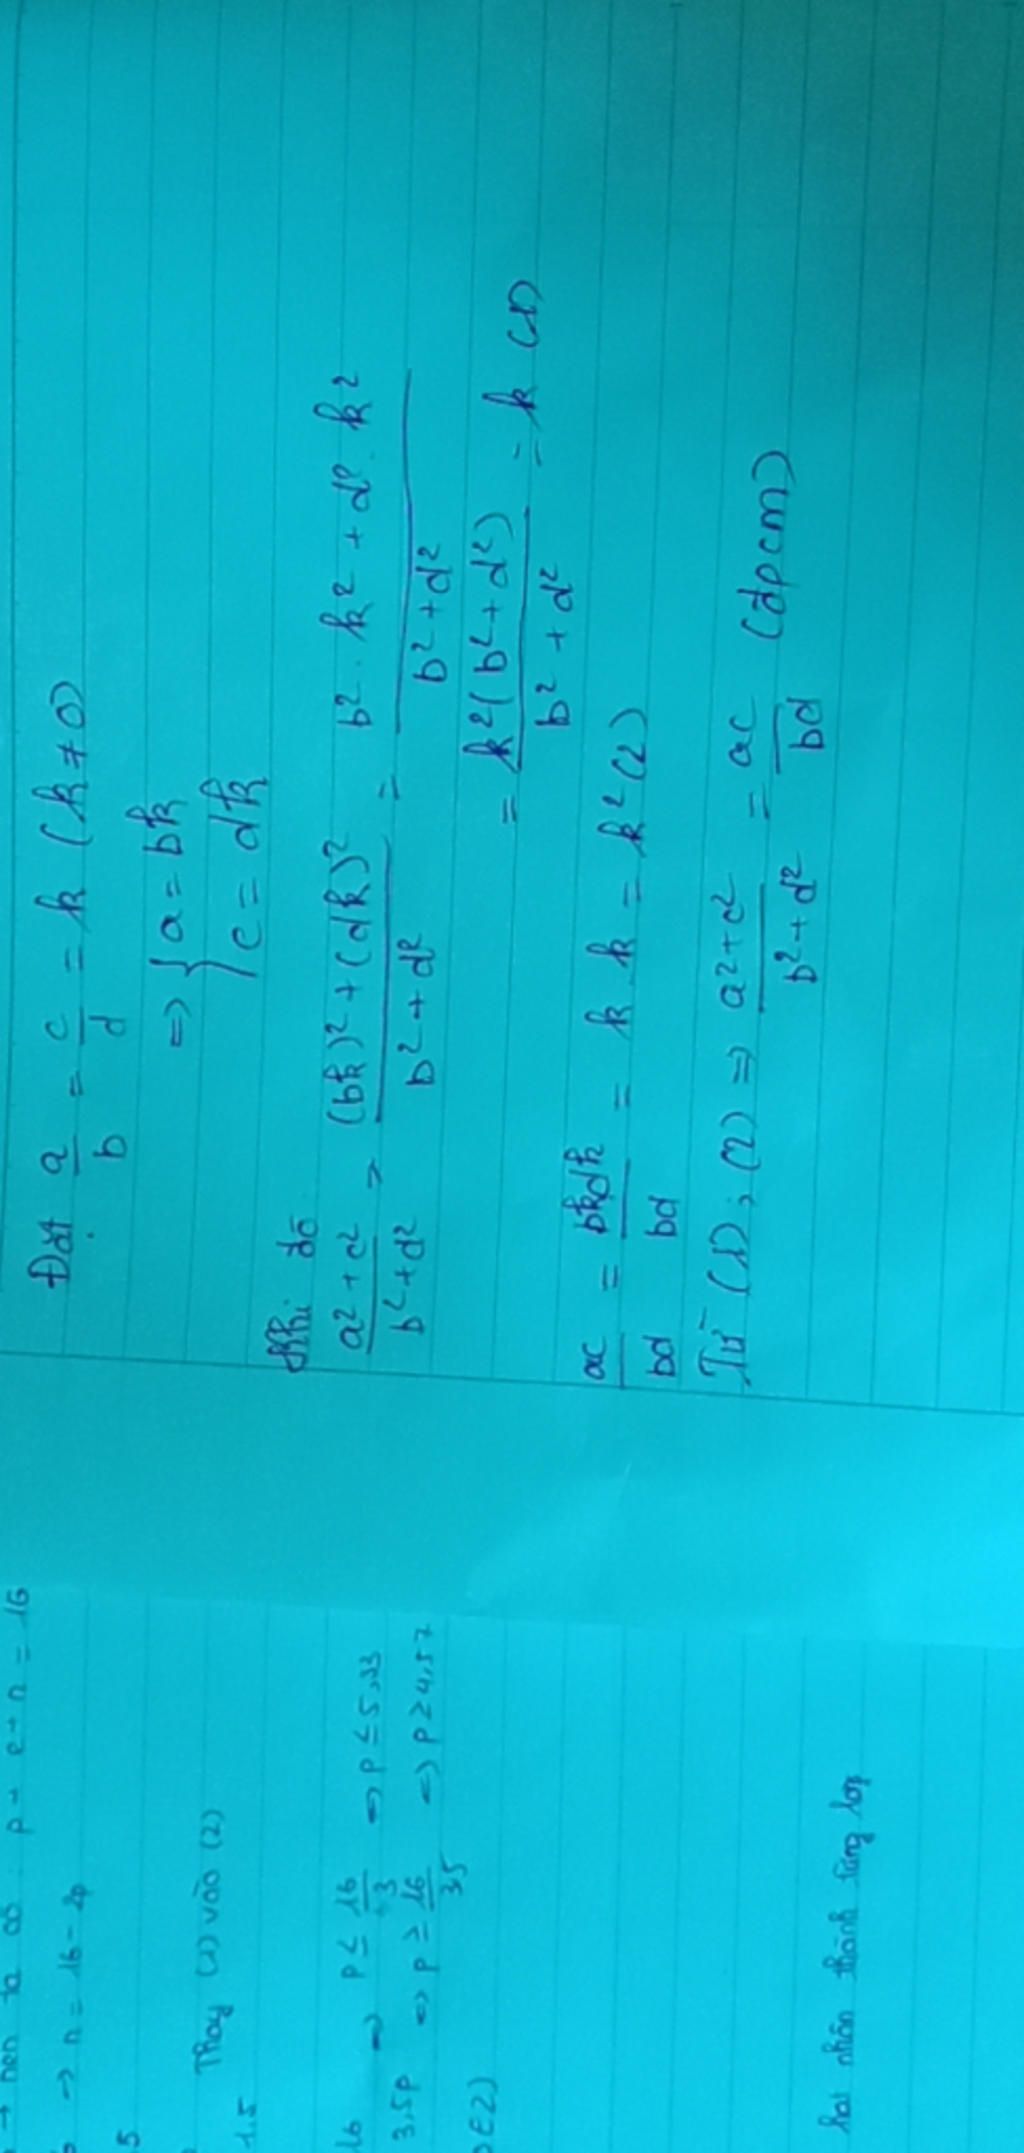 Đặt a/b = c/d = k (k ≠ 0)
=> { a = bk
c = dk
Khi đó
(a² + c²)/(b² + d²) = ((bk)² + (dk)²)/(b² + d²) = (b² . k² + d² . k²)/(b² + d²)
= k²(b² + d²)/(b² + d²) = k (1)
ac/bd = bkdk/bd = k . k = k² (2)
Từ (1) ; (2) => (a² + c²)/(b² + d²) = ac/bd (đpcm)
→ nên ta có : p + e + n = 16
→ n = 16 - 2p
5
Thay (1) vào (2)
1.5
16 => p ≤ 16/3 => p ≤ 5,33
3,5p => p ≥ 16/35 => p ≥ 4,57
p ∈ Z)
hai nhân thành từng